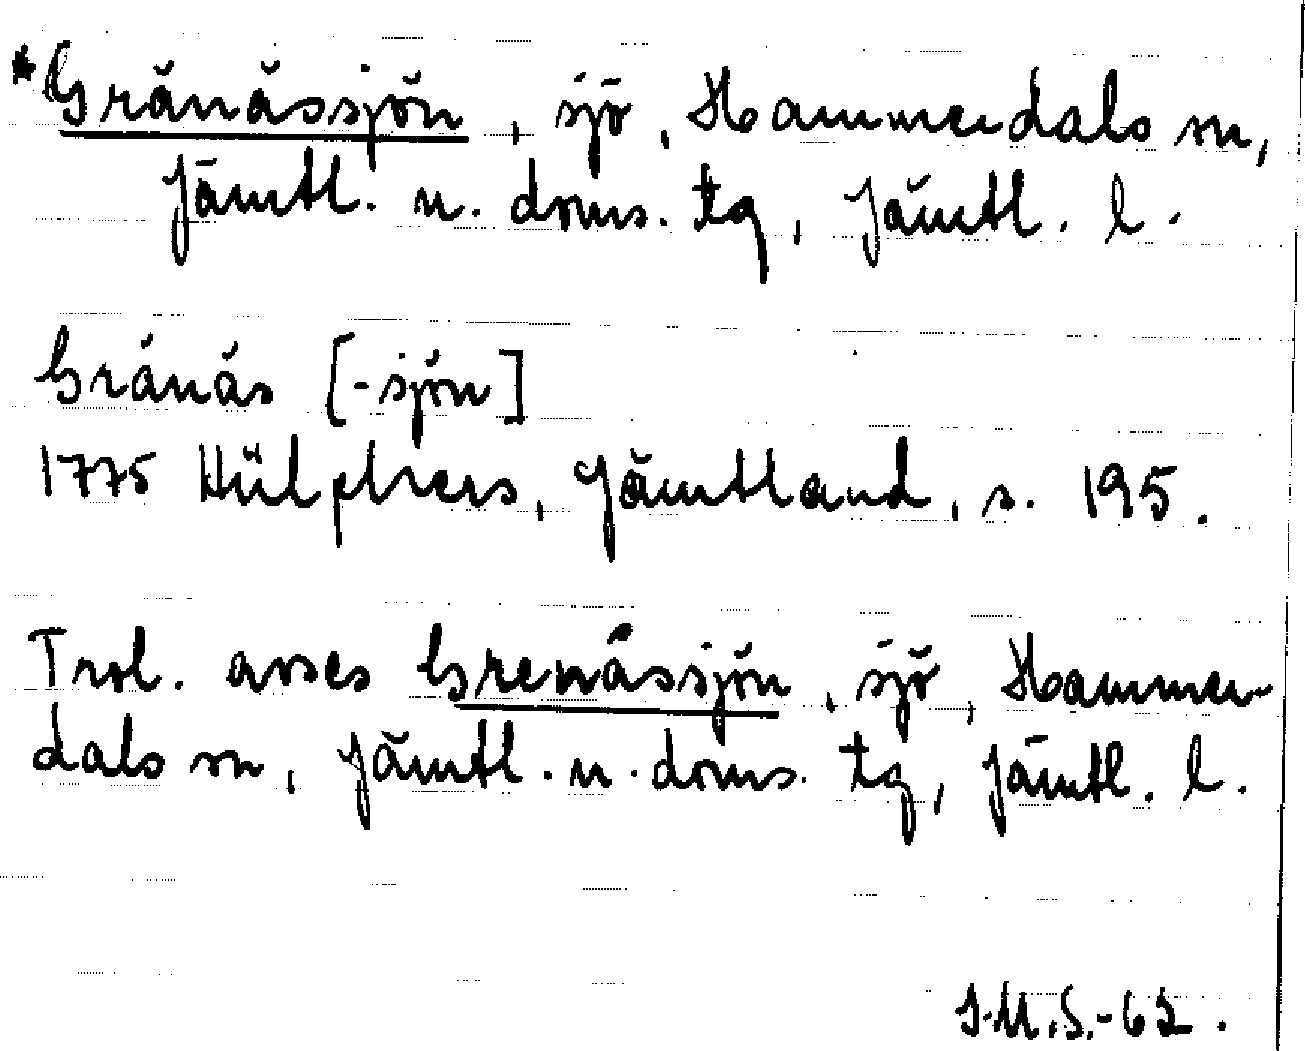 *Gränåssjön, sjö, Hammerdals sn,
Jämtl. n. doms. tg, Jämtl. l.
Gränås [-sjön]
1775 Hülphers, Jämtland, s. 195.
Trol. avses Grenåssjön, sjö, Hammer-
dals sn, Jämtl. n. doms. tg, Jämtl. l.
I.M.S.-62.